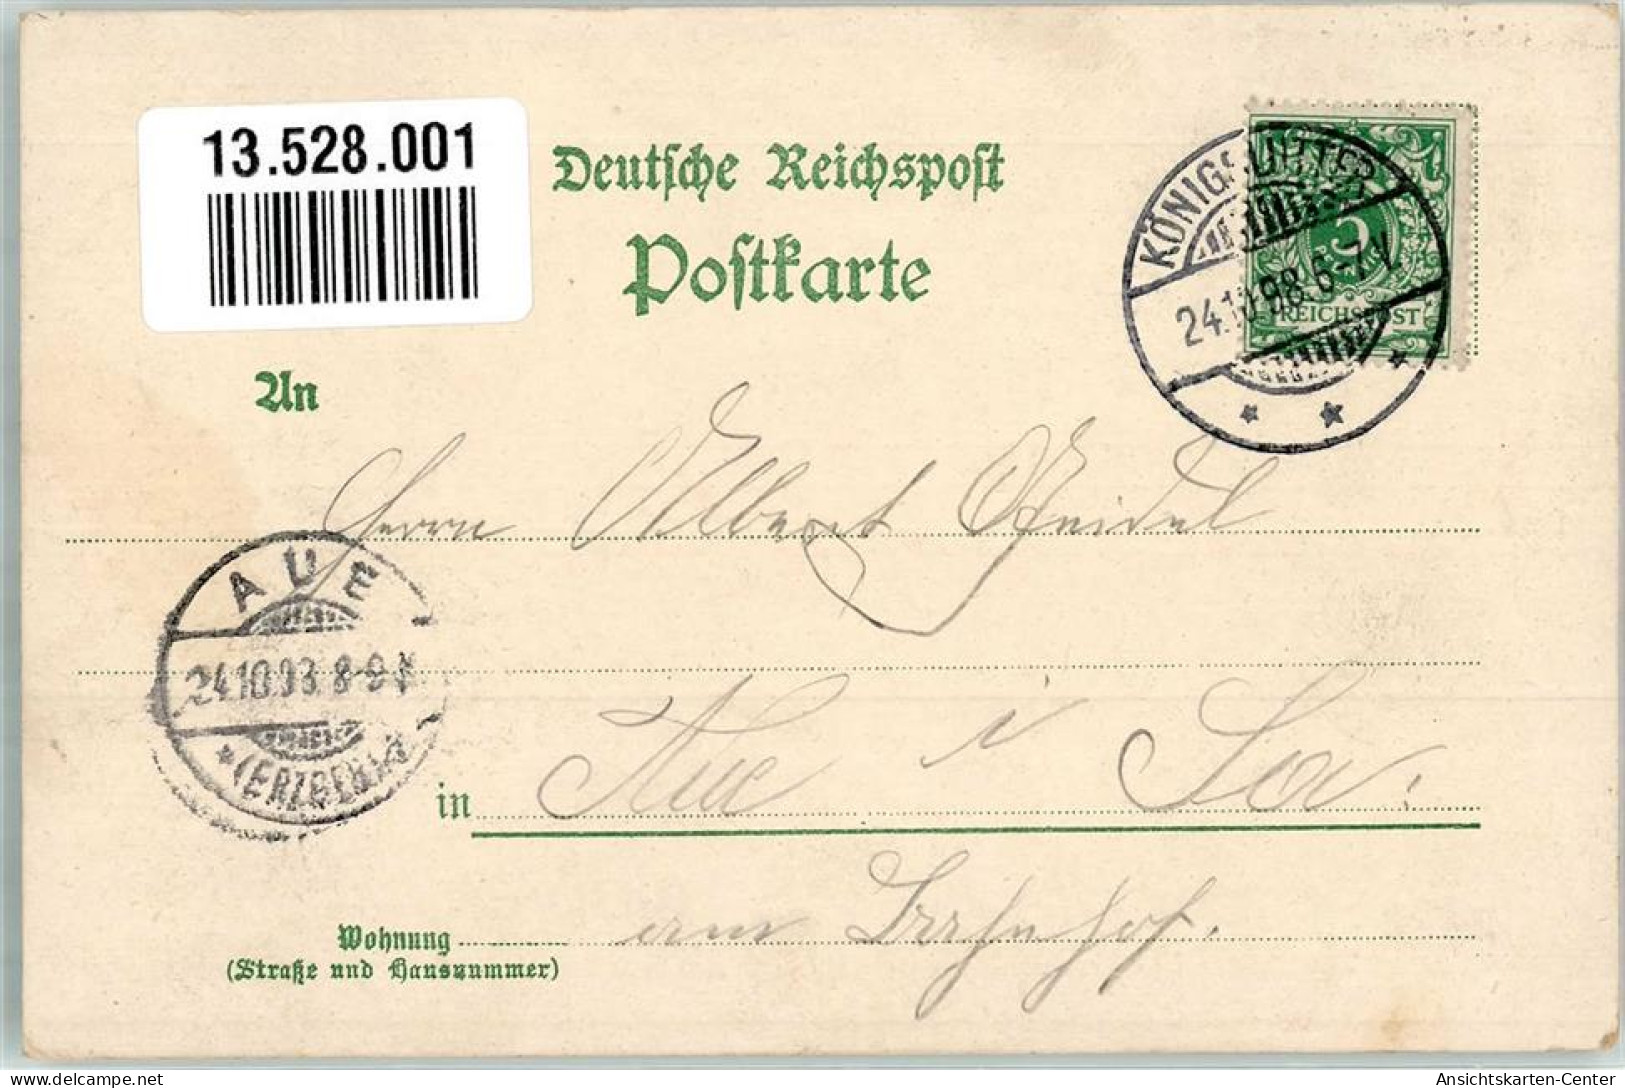 13.528.001
Deutsche Reichspost
Postkarte
KÖNIGSLUTTER
24.10.98.6-7 V.
5
REICHSPOST
An
Herrn Albert Seidel
AUE
24.10.98.8-9
(ERZGEB.)
in Aue i Sa.
Wohnung am Bahnhof.
(Straße und Hausnummer)
Ansichtskarten-Center